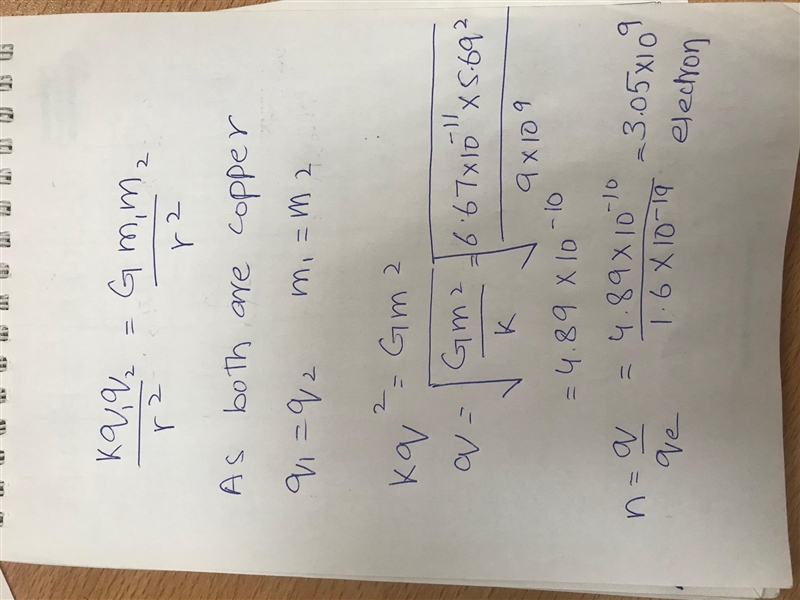 Kq₁q₂/r² = G m₁m₂/r²
As both are copper
q₁ = q₂ m₁ = m₂
Kq² = Gm²
q = √(Gm²/K) = √(6.67×10⁻¹¹ × 5.69²/9×10⁹)
= 4.89 × 10⁻¹⁰
n = q/qe = 4.89 × 10⁻¹⁰/1.6 × 10⁻¹⁹ = 3.05×10⁹
electron